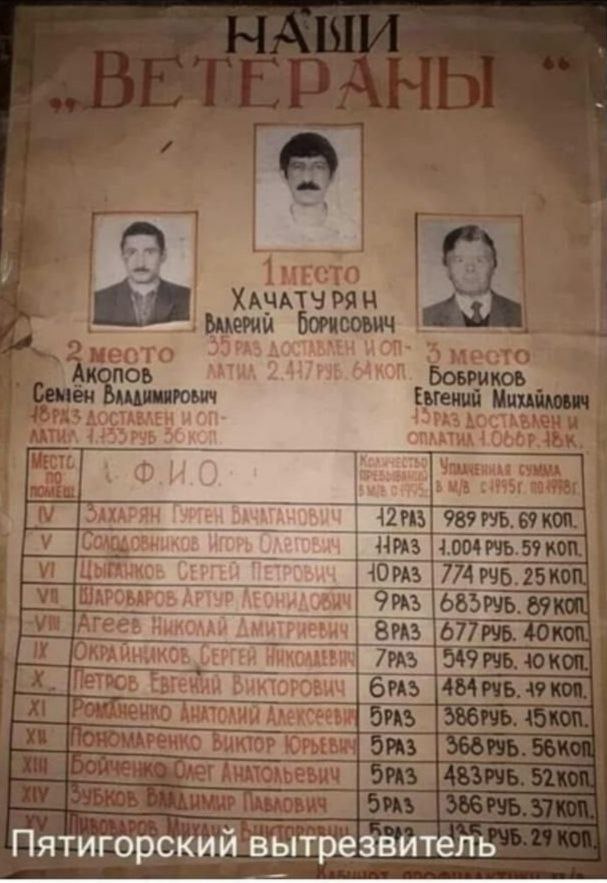 НАШИ
„ВЕТЕРАНЫ“
1 место
ХАЧАТУРЯН
Валерий Борисович
35 раз доставлен и оп-
латил 2.417 руб. 64 коп.
2 место
Акопов
Семён Владимирович
18 раз доставлен и оп-
латил 1.133 руб 36 коп.
3 место
Бобриков
Евгений Михайлович
13 раз доставлен и
оплатил 1.066 р. 18 к.
Место по помещ. Ф.И.О. Количество пребываний в м/в с 1995г. Уплаченная сумма в м/в с 1995г. по 1998г.
IV Захарян Гурген Вачаганович 12 раз 989 руб. 69 коп.
V Солодовников Игорь Олегович 11 раз 1.004 руб. 59 коп.
VI Цыганков Сергей Петрович 10 раз 774 руб. 25 коп
VII Шароваров Артур Леонидович 9 раз 683 руб. 89 коп
VIII Агеев Николай Дмитриевич 8 раз 677 руб. 40 коп.
IX Окрайников Сергей Николаевич 7 раз 549 руб. 10 коп.
X Петров Евгений Викторович 6 раз 484 руб. 19 коп.
XI Романенко Анатолий Алексеевич 5 раз 386 руб. 15 коп.
XII Пономаренко Виктор Юрьевич 5 раз 368 руб. 56 коп
XIII Бойченко Олег Анатольевич 5 раз 483 руб. 52 коп.
XIV Зубков Владимир Павлович 5 раз 386 руб. 37 коп.
XV Пивоваров Михаил Викторович 5 раз 135 руб. 29 коп.
Пятигорский вытрезвитель
Кабинет профилактики